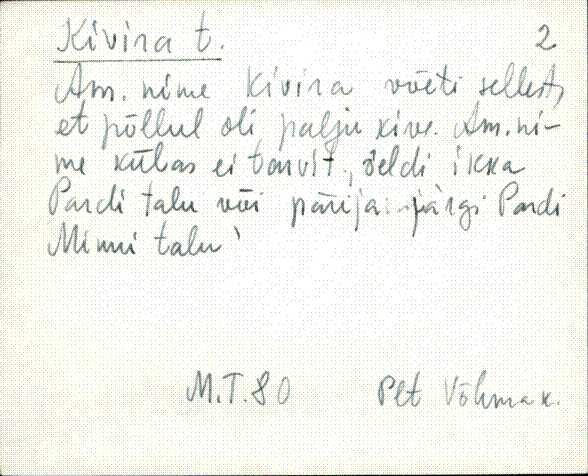 Kivira t. 2
Am. nime Kivira võeti sellest,
et põllul oli palju kive. Am. ni-
me külas ei tarvit., öeldi ikka
Pardi talu või pärija järgi Pardi
Minni talu
M.T. 80 Plt Võhma k.